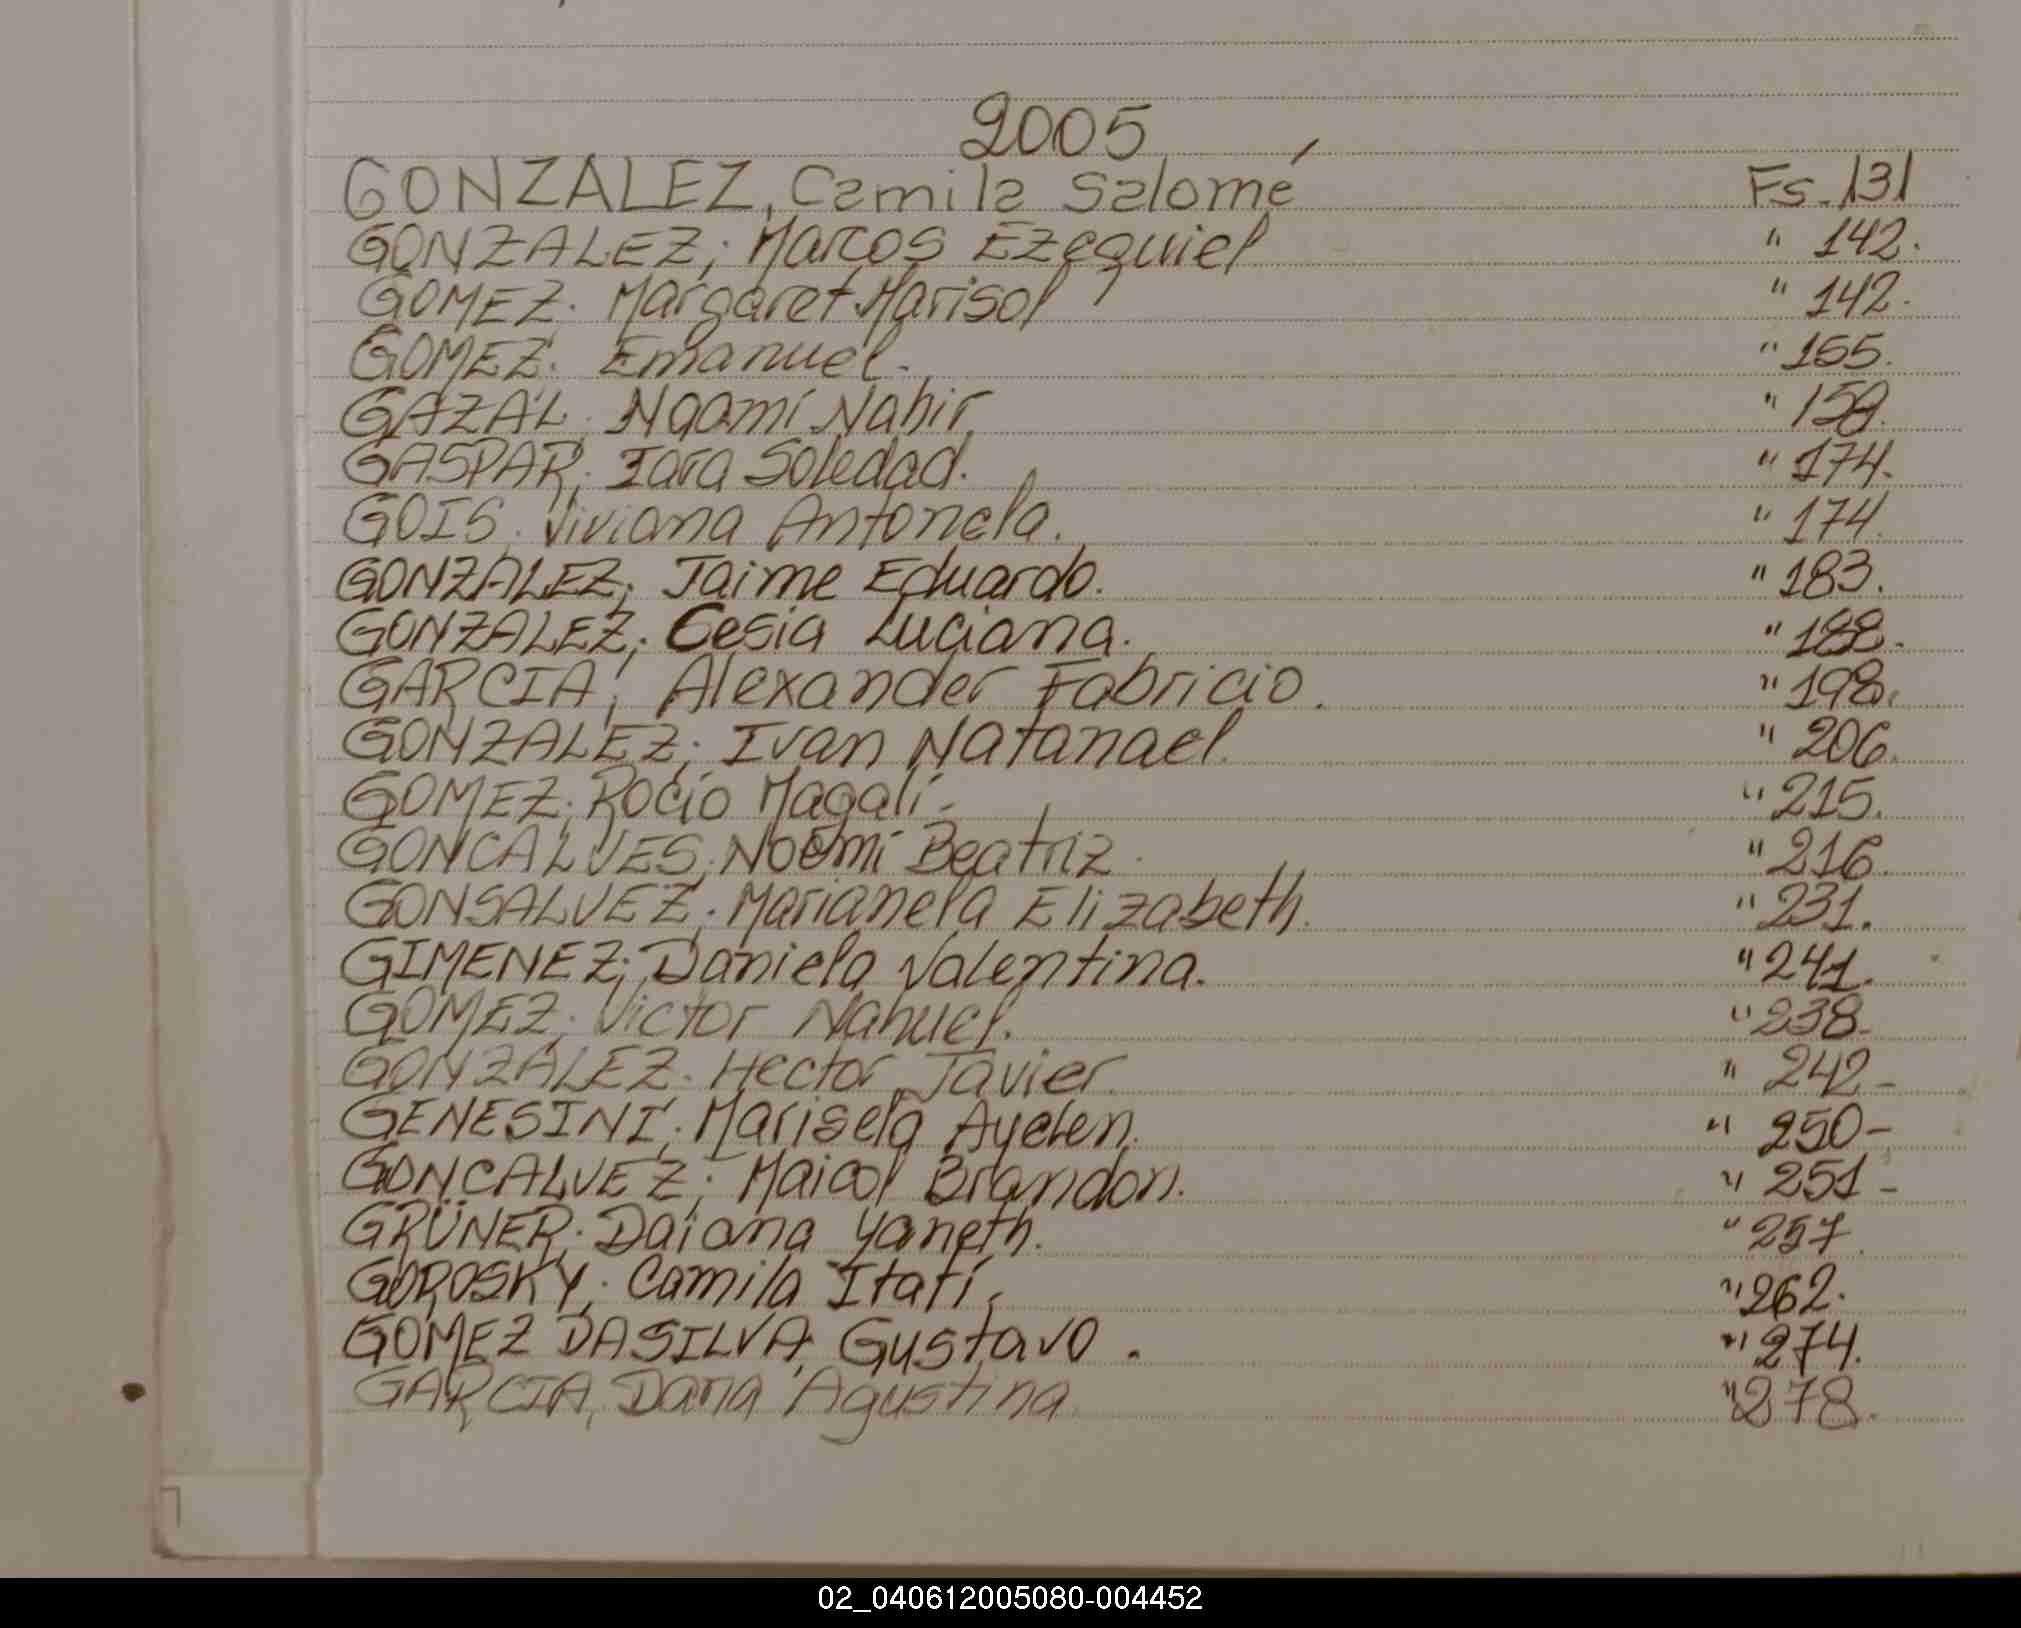 2005
GONZALEZ, Camila Salomé Fs. 131
GONZALEZ; Marcos Ezequiel " 142.
GOMEZ. Margaret Marisol " 142.
GOMEZ. Emanuel. " 155.
GAZAL. Noamí Nahir " 159.
GASPAR; Iara Soledad. " 174.
GOIS. Viviana Antonela. " 174.
GONZALEZ; Jaime Eduardo. " 183.
GONZALEZ; Cesia Luciana. " 188.
GARCIA; Alexander Fabricio. " 198.
GONZALEZ; Ivan Natanael. " 206.
GOMEZ; Rocío Magalí. " 215.
GONCALVES; Noemí Beatriz. " 216.
GONSALVEZ; Marianela Elizabeth. " 231.
GIMENEZ; Daniela Valentina. " 241.
GOMEZ; Victor Nahuel. " 238.
GONZALEZ. Hector Javier. " 242-
GENESINI; Marisela Ayelen. " 250-
GONCALVEZ; Maicol Brandon. " 251-
GRÜNER; Daiana Yaneth. " 257.
GOROSKY; Camila Itatí. " 262.
GOMEZ DASILVA, Gustavo. " 274.
GARCIA, Dana Agustina. " 278.
02_040612005080-004452